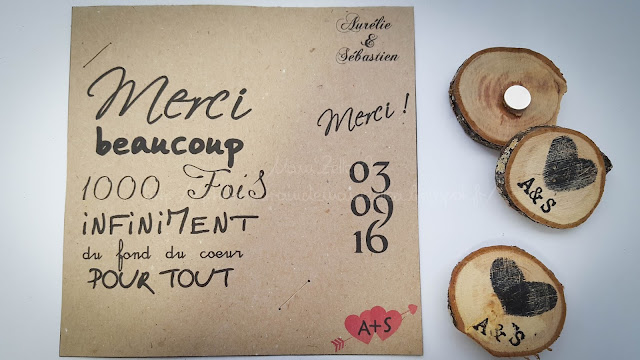 Aurélie
&
Sébastien
Merci
beaucoup
1000 Fois
iNFiNiMENT
du fond du coeur
POUR TOUT
Merci !
03
09
16
A+S
A&S
A&S